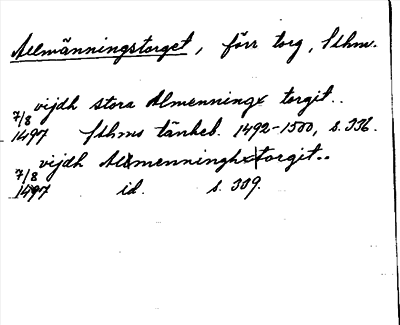 Allmänningstorget, förr torg, Sthm.
vijdh stora Almenningx torgit..
7/8
1497 Sthms tänkeb. 1492-1500, s. 336.
vijdh Almenninghx torgit..
7/8
1497 id. s. 339.